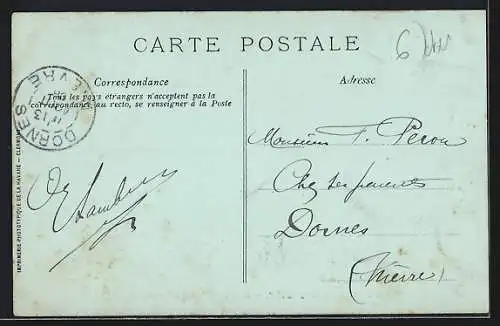 CARTE POSTALE
Correspondance
Tous les pays étrangers n'acceptent pas la
correspondance au recto, se renseigner à la Poste
Adresse
Monsieur F. Peron
Chez ses parents
Dornes
(Nièvre)
DORNES
NIÈVRE
13
IMPRIMERIE PHOTOTYPIQUE DE LA HAVANE — CLERMONT
6